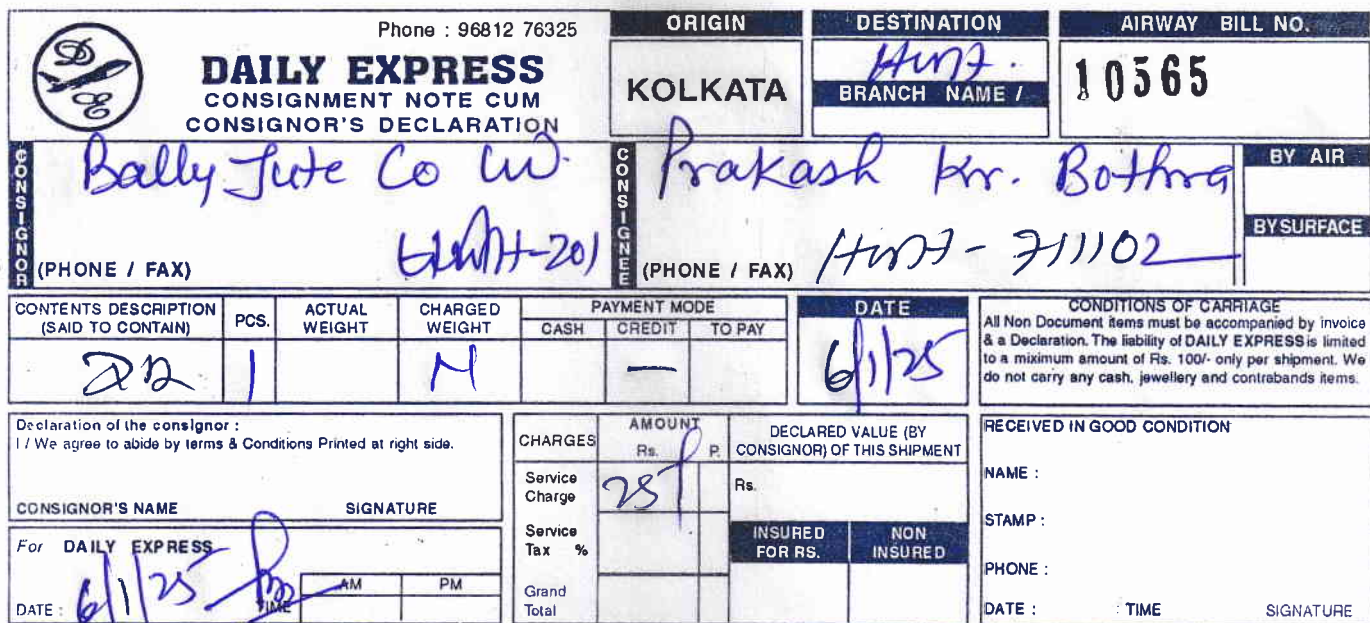 Phone : 96812 76325
DAILY EXPRESS
CONSIGNMENT NOTE CUM
CONSIGNOR'S DECLARATION
ORIGIN
KOLKATA
DESTINATION
BRANCH NAME /
AIRWAY BILL NO.
10565
CONSIGNOR
Bally Jute Co
201
(PHONE / FAX)
CONSIGNEE
Prakash Kr. Bothra
711102
(PHONE / FAX)
BY AIR
BY SURFACE
CONTENTS DESCRIPTION
(SAID TO CONTAIN)
PCS.
1
ACTUAL
WEIGHT
CHARGED
WEIGHT
N
PAYMENT MODE
CASH
CREDIT
—
TO PAY
DATE
6/1/25
CONDITIONS OF CARRIAGE
All Non Document items must be accompanied by invoice
& a Declaration. The liability of DAILY EXPRESS is limited
to a miximum amount of Rs. 100/- only per shipment. We
do not carry any cash, jewellery and contrabands items.
Declaration of the consignor :
I / We agree to abide by terms & Conditions Printed at right side.
CONSIGNOR'S NAME SIGNATURE
For DAILY EXPRESS
DATE : 6/1/25
TIME
AM
PM
CHARGES
AMOUNT
Rs. P.
Service
Charge
25
Service
Tax %
Grand
Total
DECLARED VALUE (BY
CONSIGNOR) OF THIS SHIPMENT
Rs.
INSURED
FOR RS.
NON
INSURED
RECEIVED IN GOOD CONDITION
NAME :
STAMP :
PHONE :
DATE : : TIME SIGNATURE